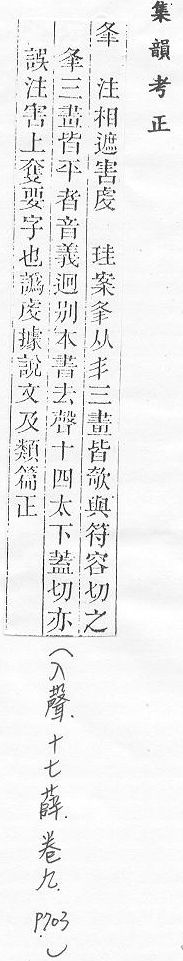 集韻考正
夆 注相遮害虔 珪案夆从丯三畫皆欹與符容切之
夆三畫皆平者音義迥別本書去聲十四太下蓋切亦
誤注害上奪要字也譌虔據說文及類篇正
（入聲．十七薛．卷九．P703）